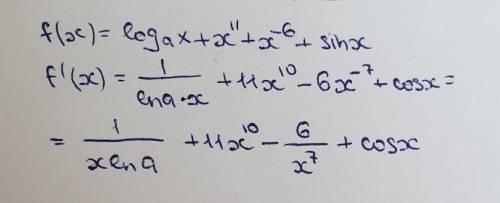 f(x) = logax + x¹¹ + x⁻⁶ + sinx
f'(x) = 1/(lna·x) + 11x¹⁰ - 6x⁻⁷ + cosx =
= 1/(xlna) + 11x¹⁰ - 6/x⁷ + cosx